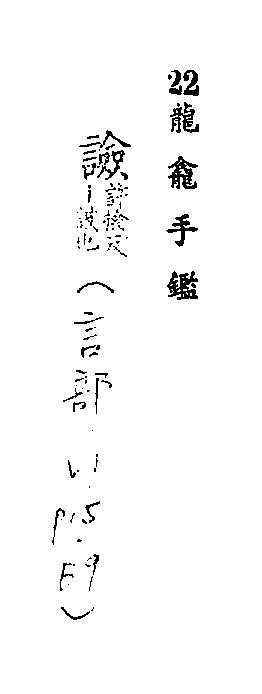 22龍龕手鑑
譣許撿反丨詖也(言部.V1.p15.F9)